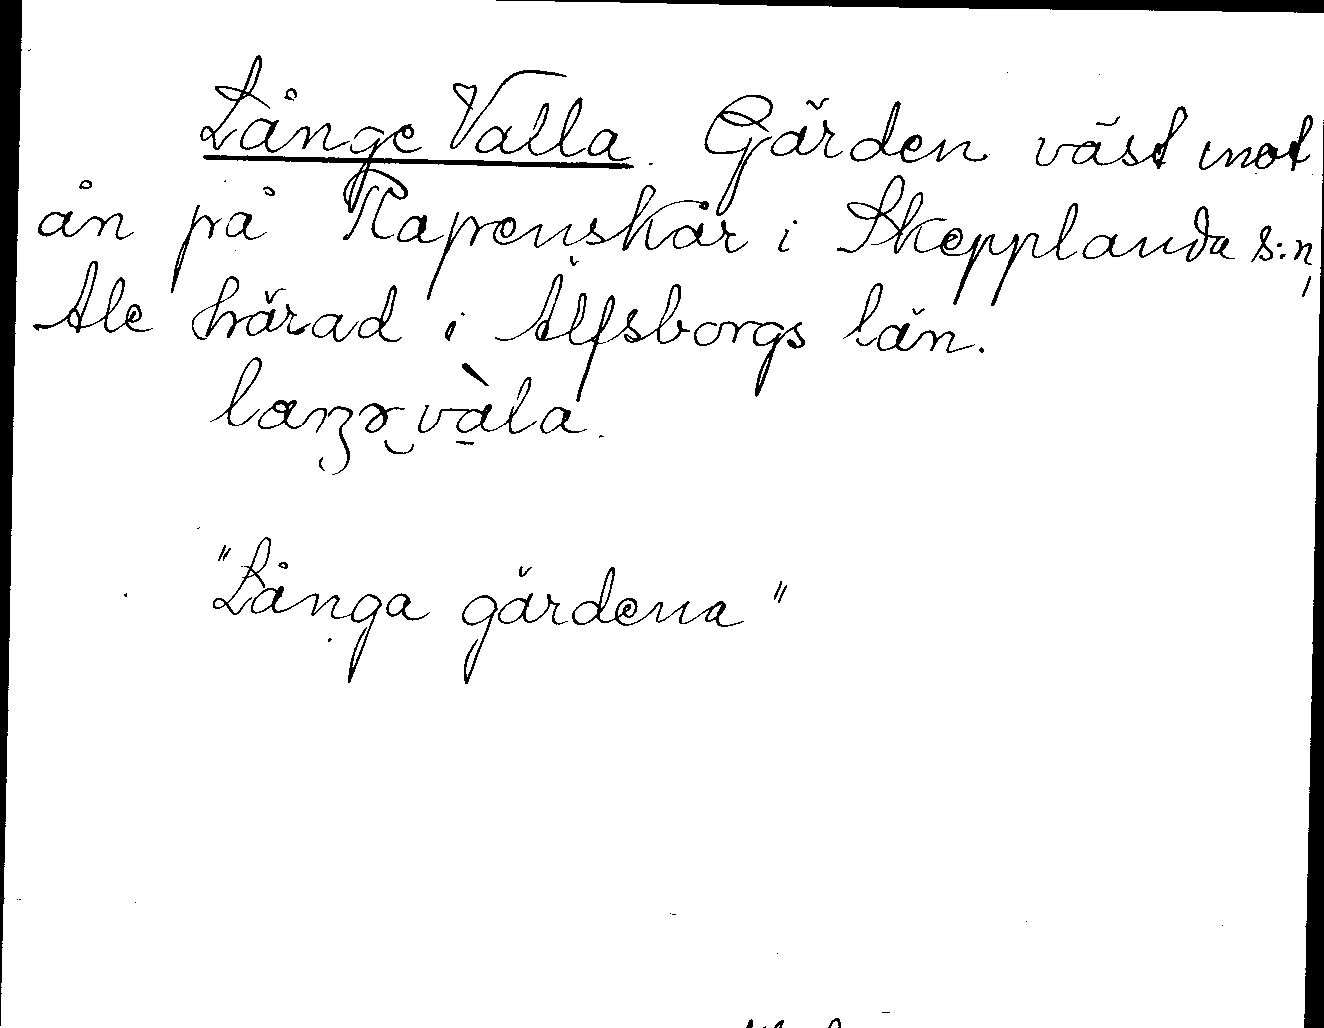 Långe Valla. Gärden väst mot
ån på Rapenskår i Skepplanda s:n,
Ale härad i Älfsborgs län.
"Långa gärdena"